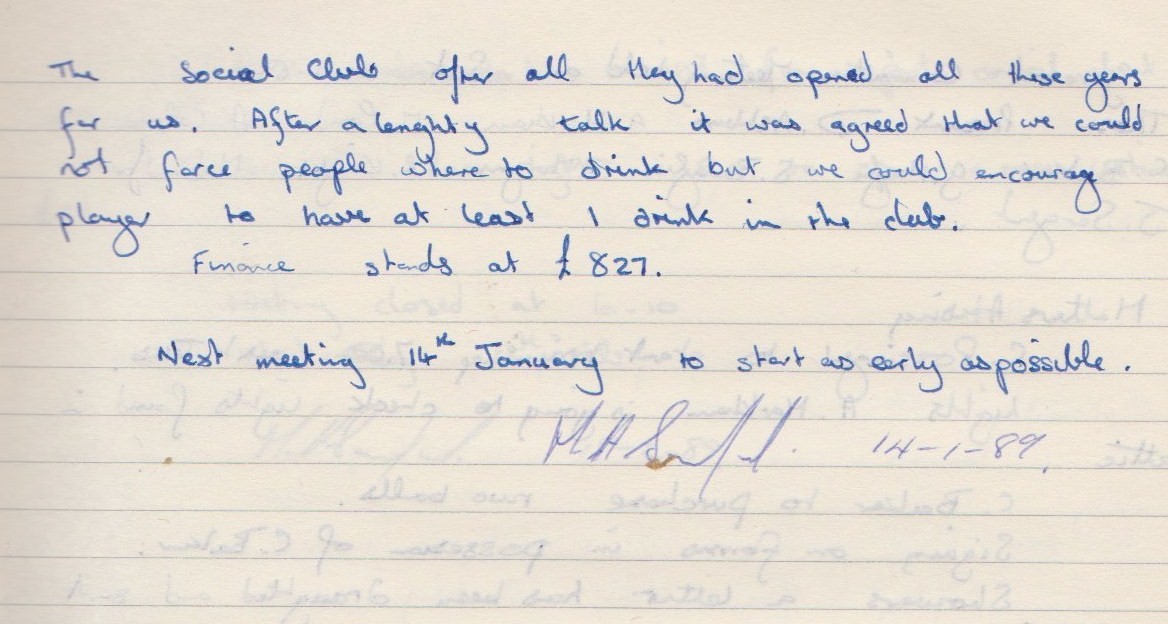 The Social Club after all they had opened all these years
for us. After a lenghty talk it was agreed that we could
not force people where to drink but we could encourage
player to have at least 1 drink in the club.
Finance stands at £827.
Next meeting 14th January to start as early as possible.
14-1-89.